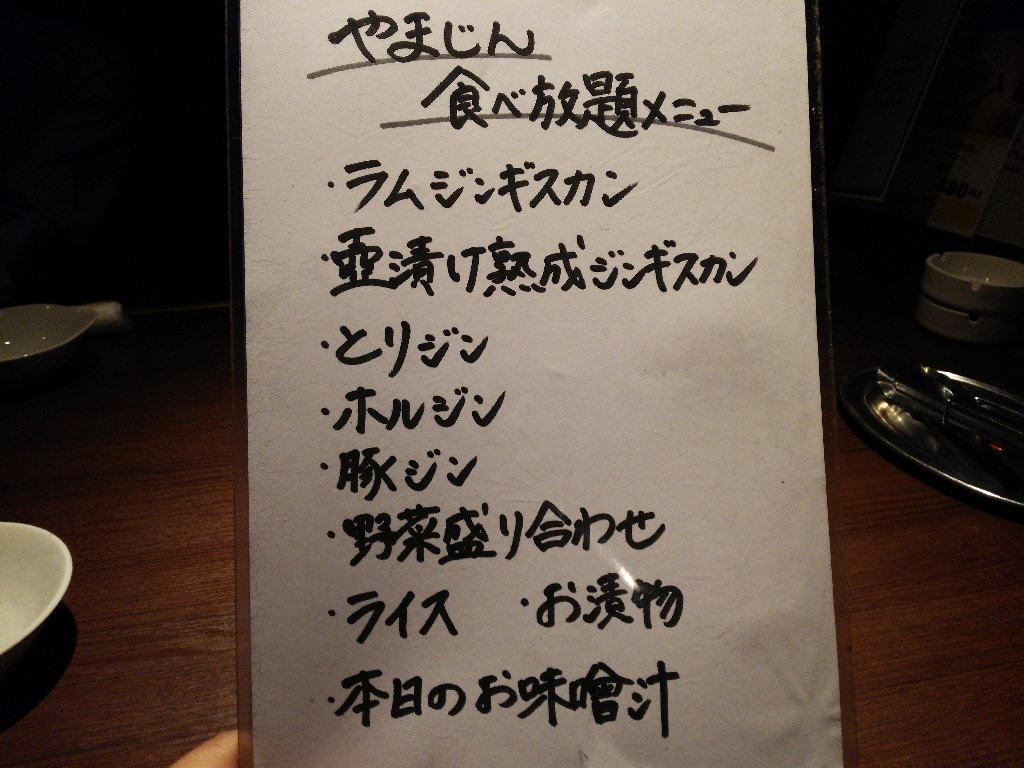 やまじん
食べ放題メニュー
・ラムジンギスカン
・壺漬け熟成ジンギスカン
・とりジン
・ホルジン
・豚ジン
・野菜盛り合わせ
・ライス ・お漬物
・本日のお味噌汁